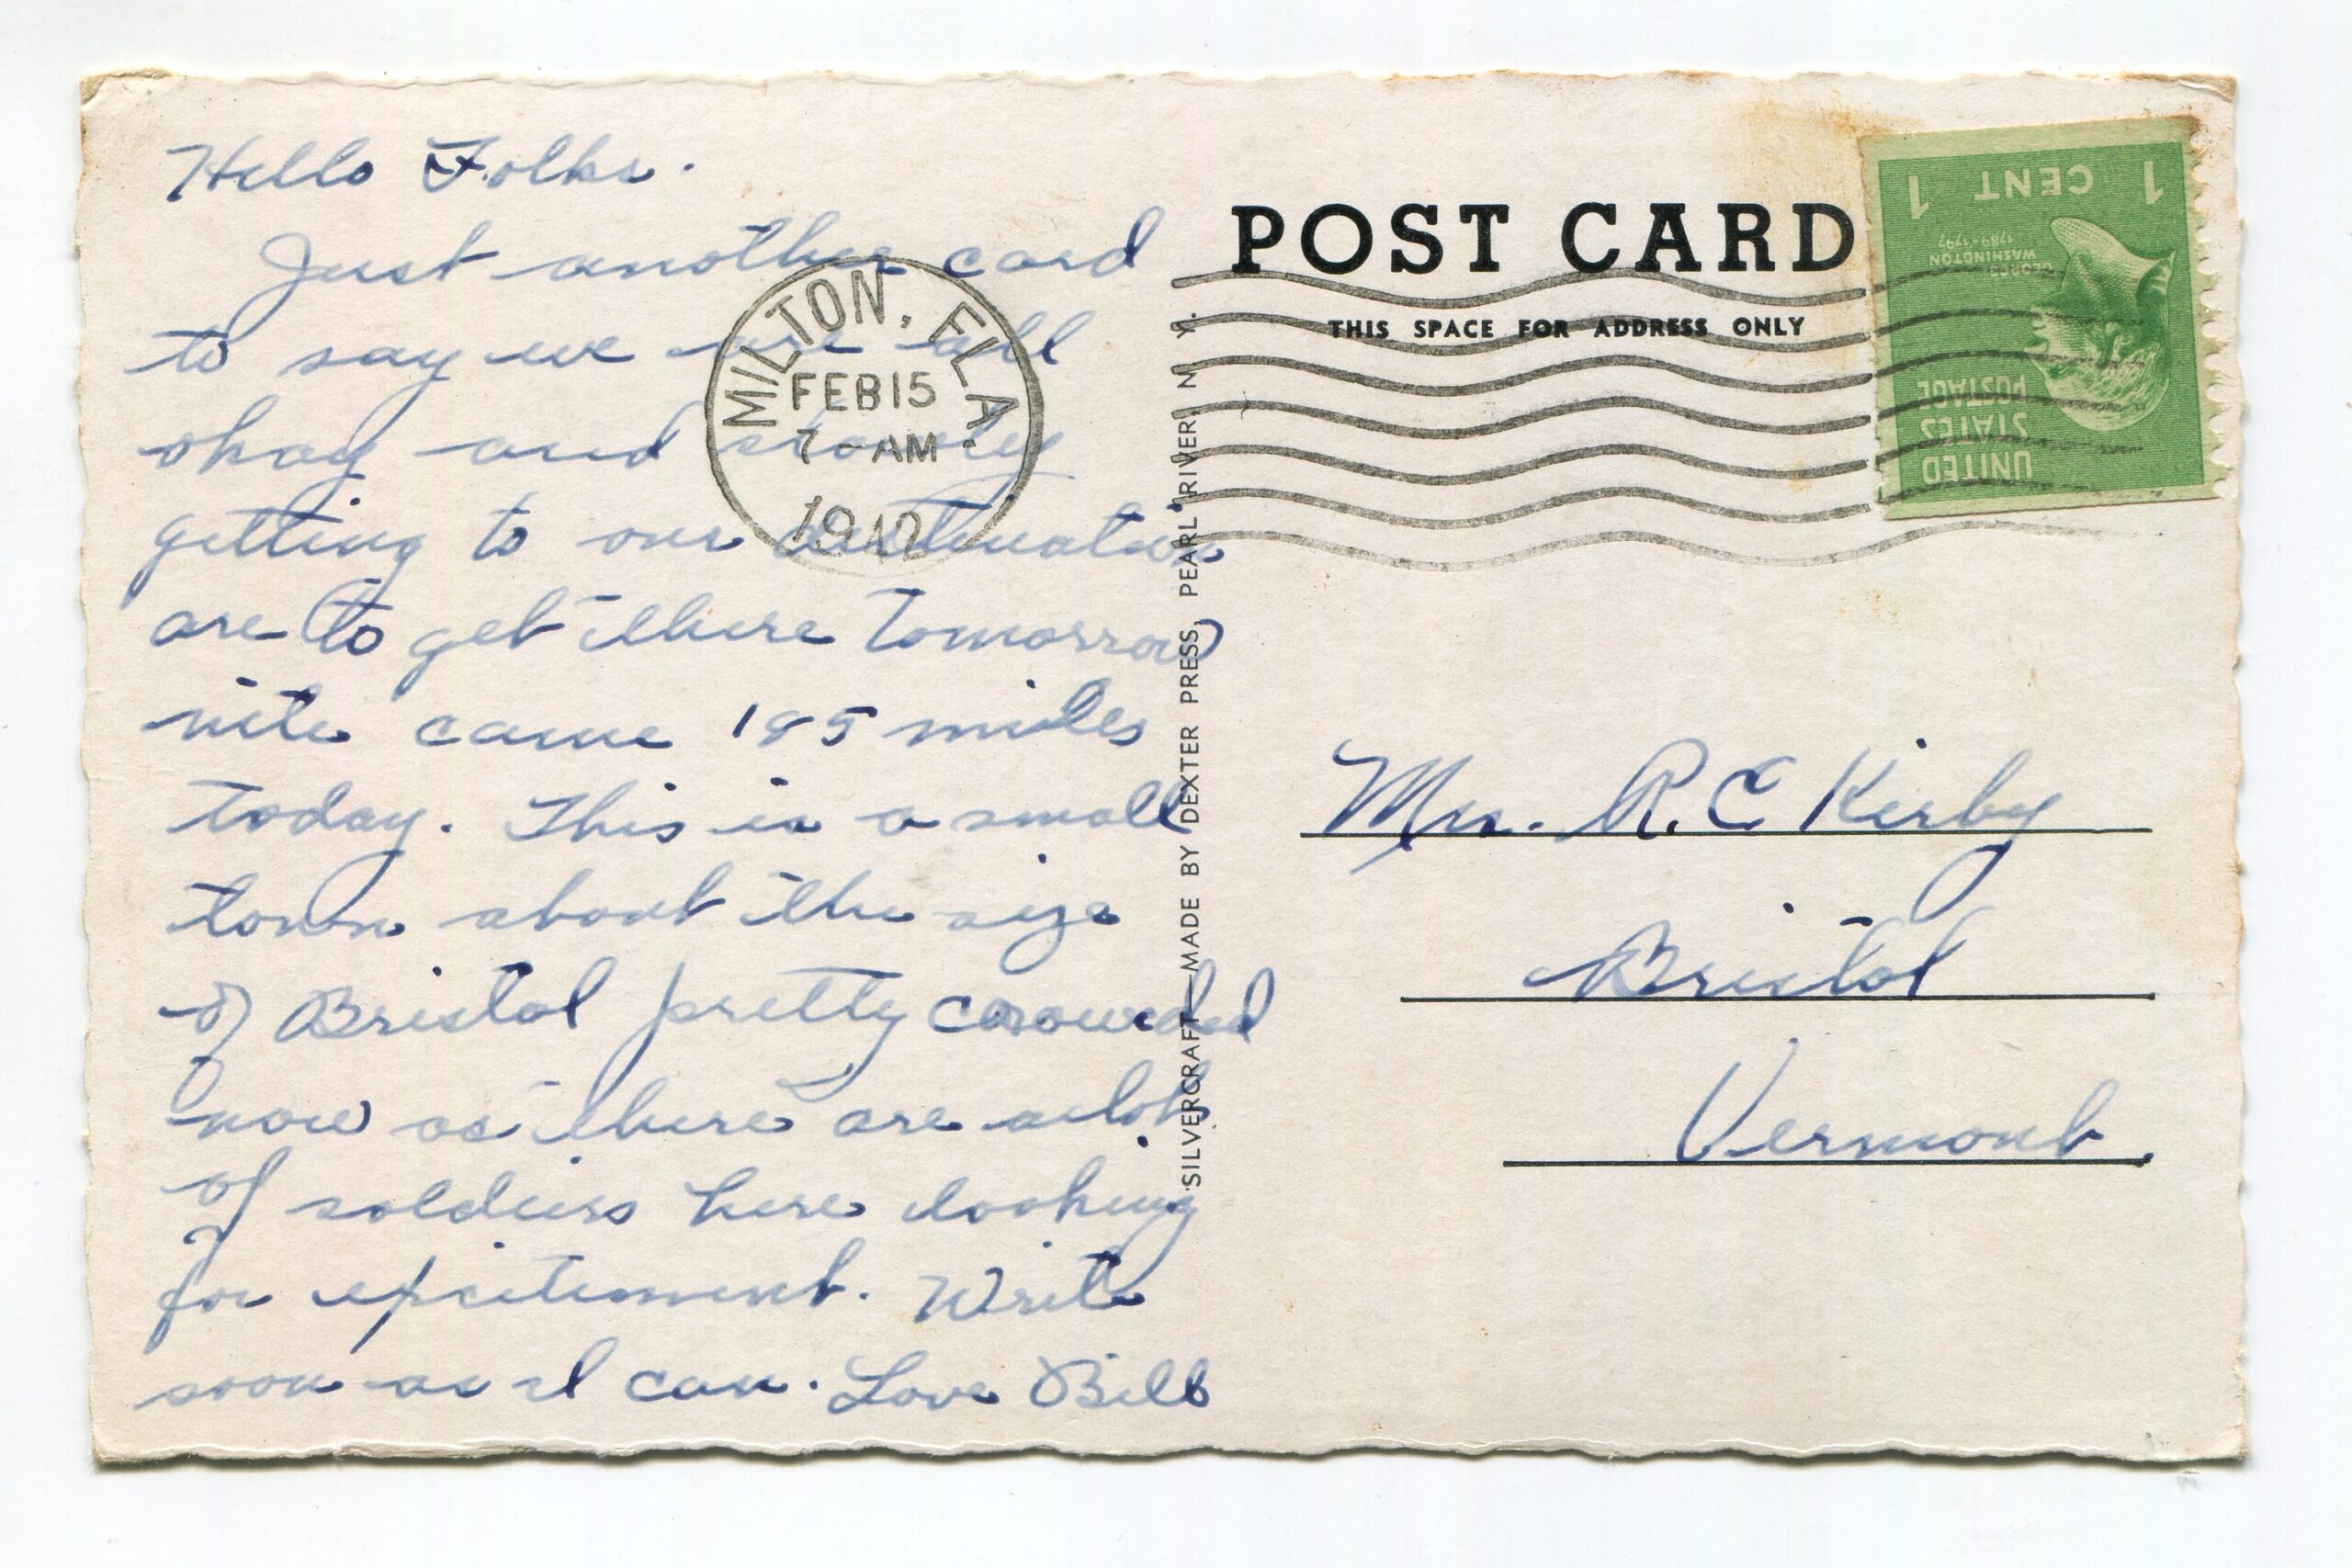 Hello Folks.
Just another card
to say we are all
okay and slowly
getting to our destination
are to get there tomorrow
nite came 195 miles
today. This is a small
town about the size
of Bristol pretty crowded
now as there are alot
of soldiers here looking
for excitement. Write
soon as I can. Love Bill
MILTON, FLA.
FEB 15
7-AM
1942
SILVERCRAFT—MADE BY DEXTER PRESS, PEARL RIVER, N. Y.
POST CARD
THIS SPACE FOR ADDRESS ONLY
1 CENT 1
GEORGE
WASHINGTON
1789-1797
UNITED
STATES
POSTAGE
Mrs. R.C Kirby
Bristol
Vermont.